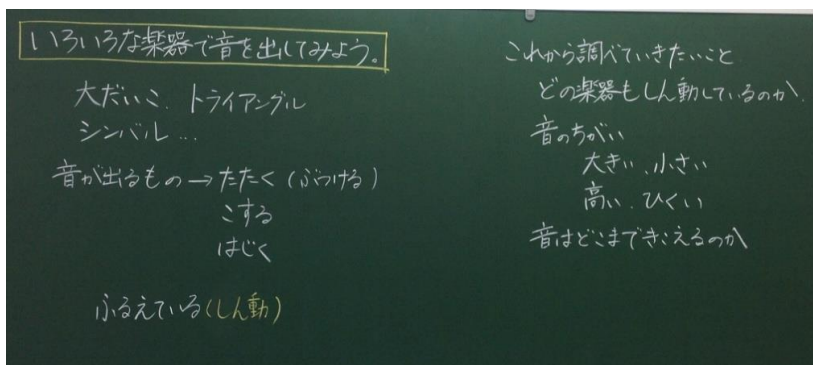 いろいろな楽器で音を出してみよう。
大だいこ、トライアングル
シンバル…
音が出るもの→たたく(ぶつける)
こする
はじく
ふるえている(しん動)
これから調べていきたいこと
どの楽器もしん動しているのか、
音のちがい
大きい、小さい
高い、ひくい
音はどこまできこえるのか